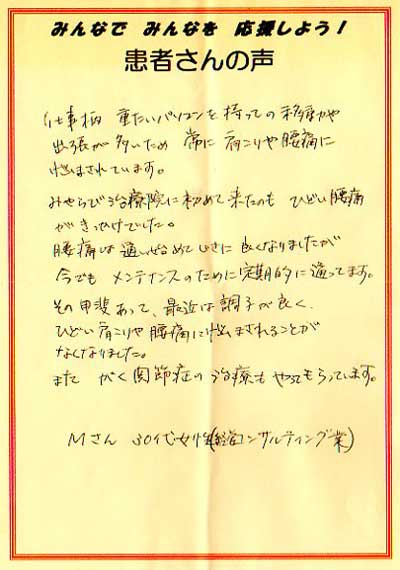 みんなで みんなを 応援しよう!
患者さんの声
仕事柄 重たいパソコンを持っての移動や
出張が多いため 常に肩こりや腰痛に
悩まされています。
みやらび治療院に初めて来たのも ひどい腰痛
がきっかけでした。
腰痛は通い始めてじきに良くなりましたが
今でも メンテナンスのために定期的に通ってます。
その甲斐あって、最近は調子が良く、
ひどい肩こりや腰痛に悩まされることが
なくなりました。
また がく関節症の治療もやってもらっています。
Mさん 30代女性(経営コンサルティング業)